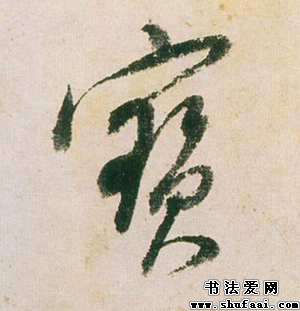 寳
书法爱网
www.shufaai.com